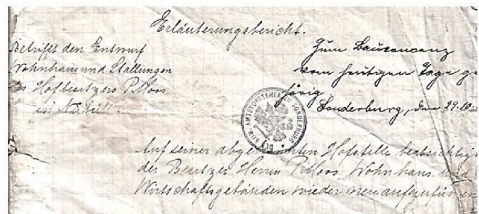 Erläuterungsbericht.
Betrifft den Entwurf
Wohnhaus und Stallungen
des Hofbesitzers P.
Zum
vom heutigen Tage g
hörig
Sonderburg, den 29.10.
Auf seiner Hofstelle beabsichtig
der Besitzer Herrn Wohnhaus und
Wirtschaftsgebäuden wieder neu aufzuführen